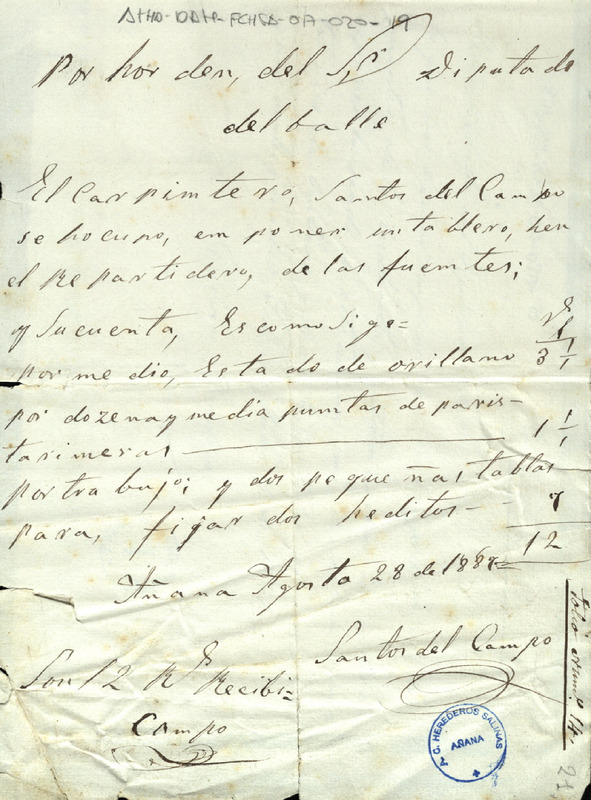 ATHA-DAH-FCHSA-017-020-19
Por horden, del Sr Diputado
del balle
El Carpimtero, Santos del Campo
se hocupo, em poner un tablero, hen
el Repartidero, de las fuemtes;
y Sucuenta, Escomosige=
por me dio, Estado de orillano 3
por dozena y media pumtas de paris-
tarimeras 1
por trabajo; y dos pequeñas tablas
para, fijar dos heditos- 7
12
Añana Agosto 28 de
Santos del Campo
Son 12 Rs Recibi=
Campo
C. HEREDEROS SALINAS
AÑANA
21